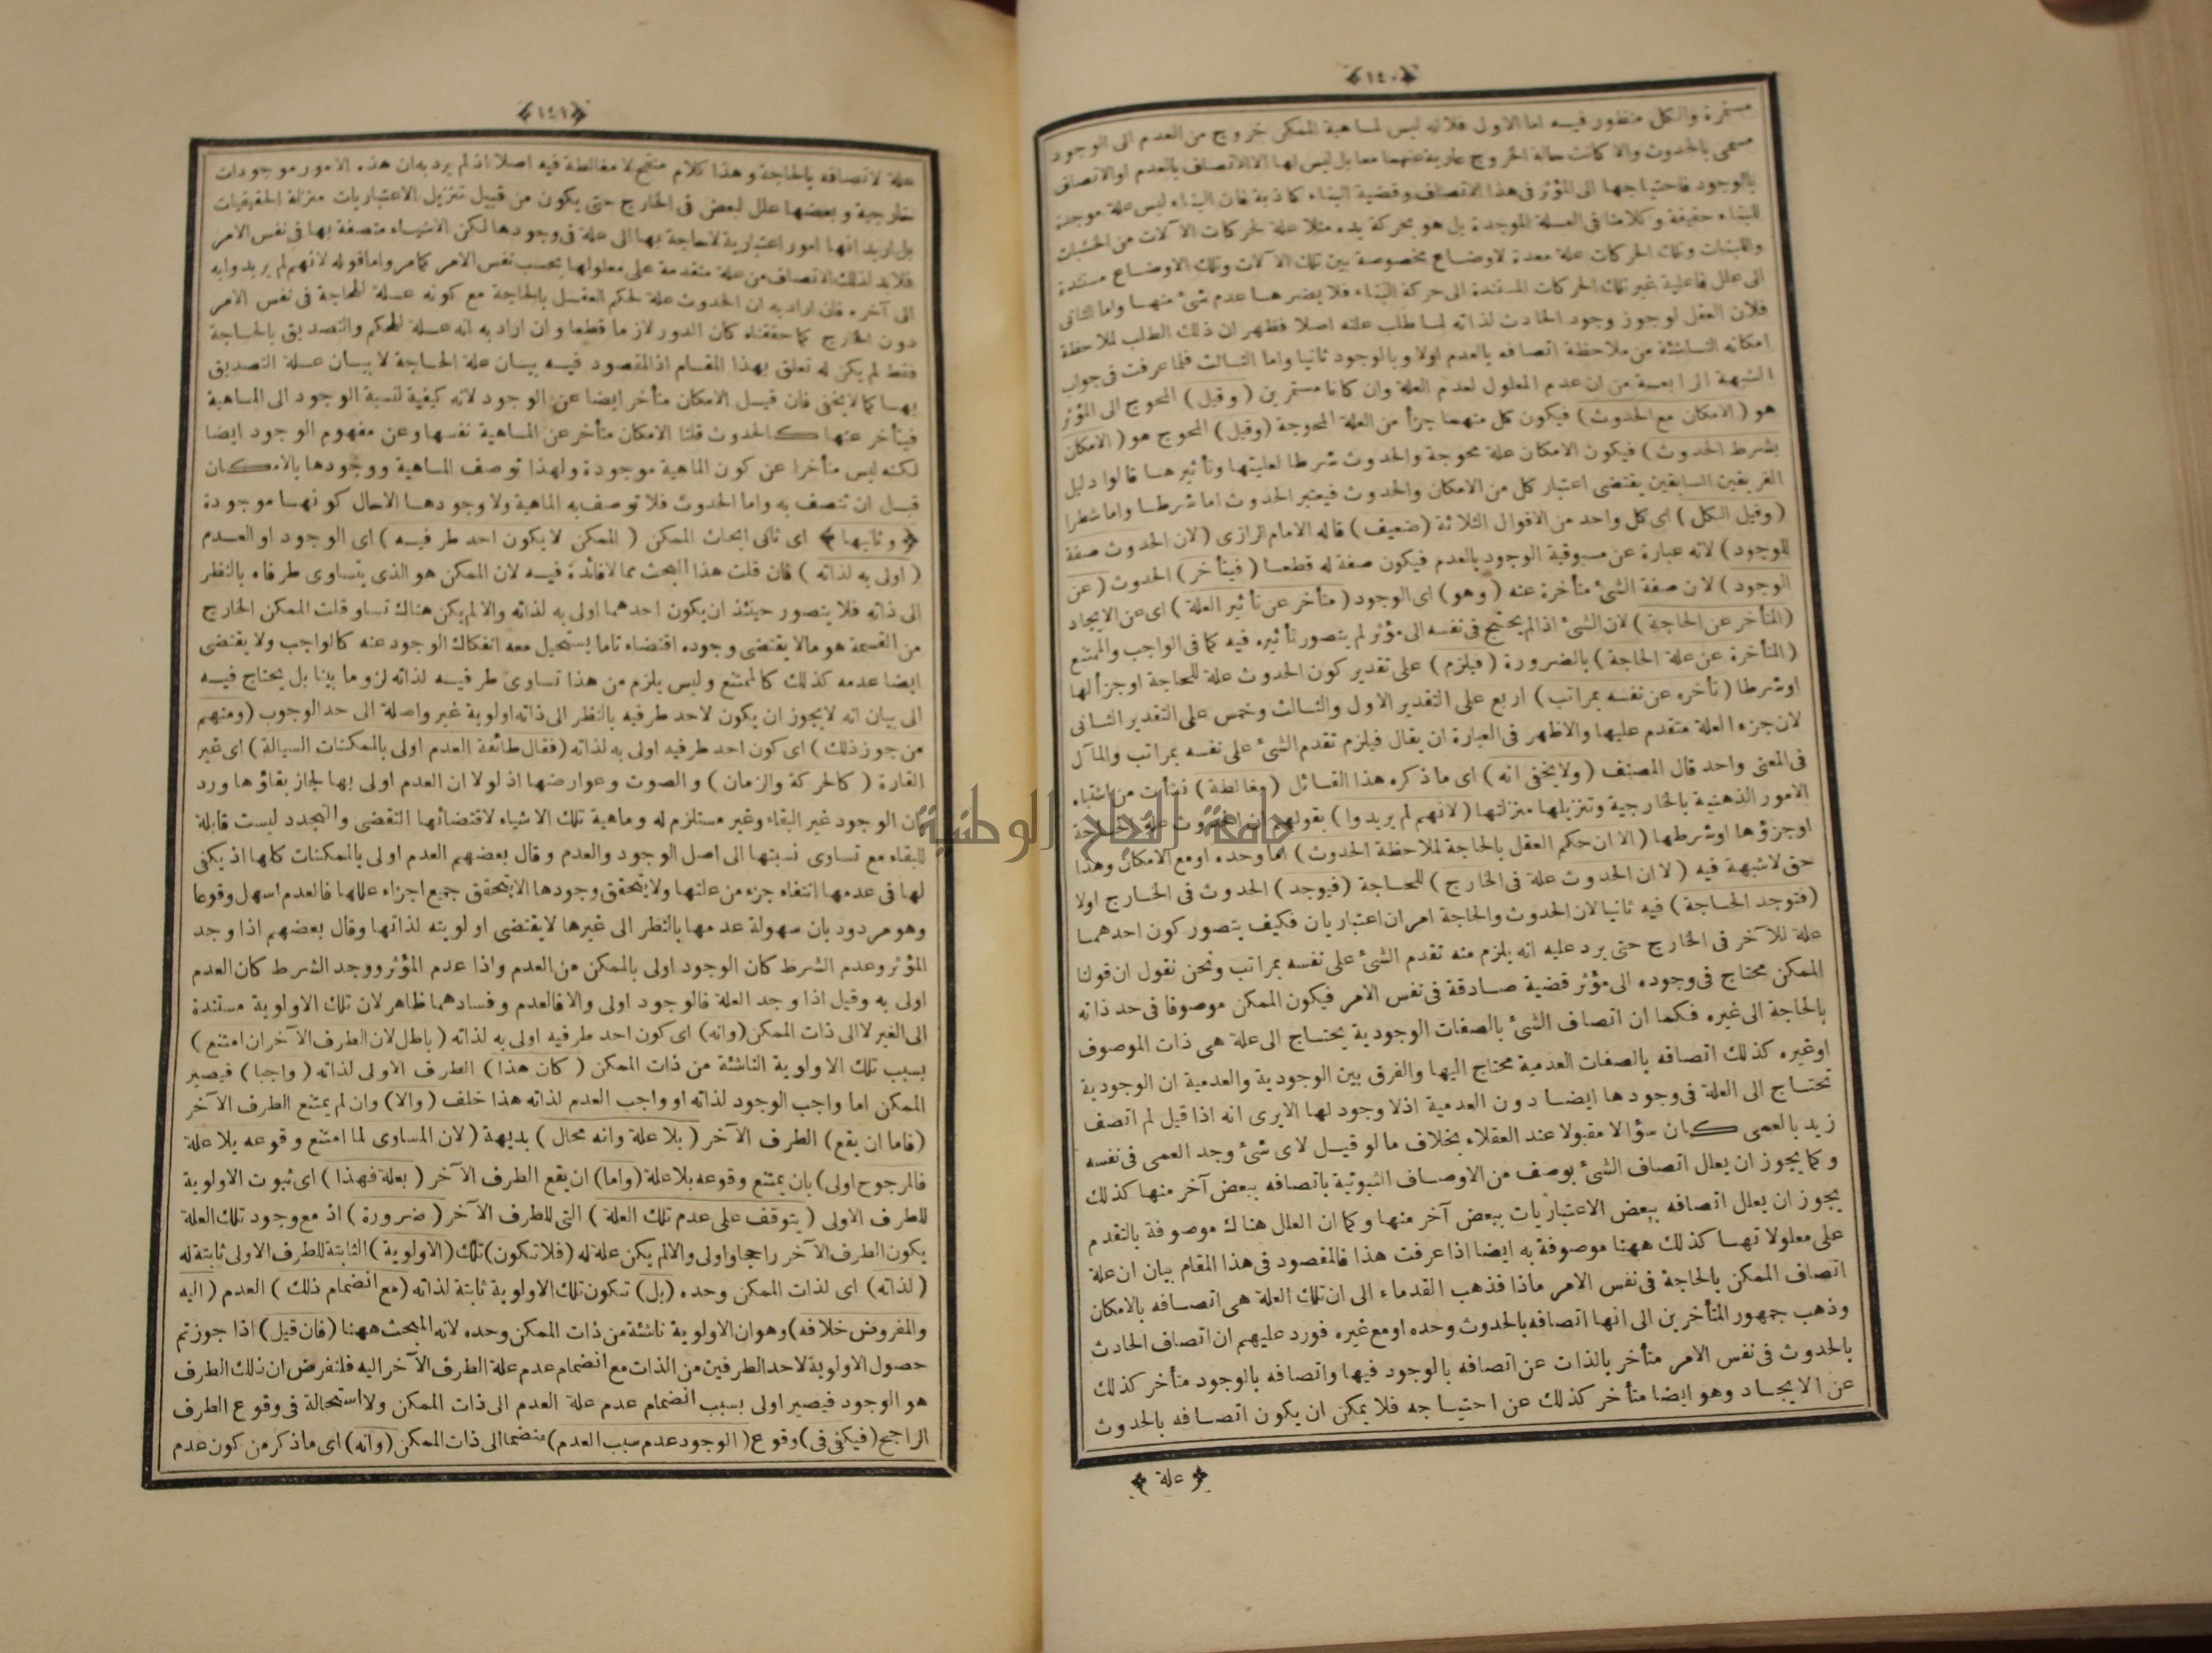 ﴿١٤٠﴾
مستمرة والكل منظور فيه اما الاول فلانه ليس لماهية الممكن خروج من العدم الى الوجود
مسمى بالحدوث والا كانت حالة الخروج عارية عنهما معا بل ليس لها الا الاتصاف بالعدم او الاتصاف
بالوجود فاحتياجها الى المؤثر فى هذا الاتصاف وقضية البناء كاذبة فان البناء ليس علة موجدة
للبناء حقيقة وكلامنا فى العلة الموجدة بل هو بحركة يده مثلا علة لحركات الآلات من الخشبات
واللبنات وتلك الحركات علة معدة لاوضاع مخصوصة بين تلك الآلات وتلك الاوضاع مستندة
الى علل فاعلية غير تلك الحركات المستندة الى حركة البناء فلا يضرها عدم شئ منها واما الثانى
فلان العقل لو جوز وجود الحادث لذاته لما طلب علته اصلا فظهر ان ذلك الطلب لملاحظة
امكانه الناشئة من ملاحظة اتصافه بالعدم اولا وبالوجود ثانيا واما الثالث فلما عرفت فى جواب
الشبهة الرابعة من ان عدم المعلول لعدم العلة وان كانا مستمرين (وقيل) المحوج الى المؤثر
هو (الامكان مع الحدوث) فيكون كل منهما جزأ من العلة المحوجة (وقيل) المحوج هو (الامكان
بشرط الحدوث) فيكون الامكان علة محوجة والحدوث شرطا لعليتها وتأثيرها قالوا دليل
الفريقين السابقين يقتضى اعتبار كل من الامكان والحدوث فيعتبر الحدوث اما شرطا واما شطرا
(وقيل الكل) اى كل واحد من الاقوال الثلاثة (ضعيف) قاله الامام الرازى (لان الحدوث صفة
للوجود) لانه عبارة عن مسبوقية الوجود بالعدم فيكون صفة له قطعا (فيتأخر) الحدوث (عن
الوجود) لان صفة الشئ متأخرة عنه (وهو) اى الوجود (متأخر عن تأثير العلة) اى عن الايجاد
(المتأخر عن الحاجة) لان الشئ اذا لم يحتج فى نفسه الى مؤثر لم يتصور تأثيره فيه كما فى الواجب والممتنع
(المتأخرة عن علة الحاجة) بالضرورة (فيلزم) على تقدير كون الحدوث علة للحاجة او جزأ لها
او شرطا (تأخره عن نفسه بمراتب) اربع على التقدير الاول والثالث وخمس على التقدير الثانى
لان جزء العلة متقدم عليها والاظهر فى العبارة ان يقال فيلزم تقدم الشئ على نفسه بمراتب والمآل
فى المعنى واحد قال المصنف (ولا يخفى انه) اى ما ذكره هذا القائل (مغالطة) نشأت من اشتباه
الامور الذهنية بالخارجية وتنزيلها منزلتها (لانهم لم يريدوا) بقولهم ان الحدوث علة الحاجة
او جزؤها او شرطها (الا ان حكم العقل بالحاجة لملاحظة الحدوث) اما وحده او مع الامكان وهذا
حق لا شبهة فيه (لا ان الحدوث علة فى الخارج) للحاجة (فيوجد) الحدوث فى الخارج اولا
(فتوجد الحاجة) فيه ثانيا لان الحدوث والحاجة امران اعتباريان فكيف يتصور كون احدهما
علة للآخر فى الخارج حتى يرد عليه انه يلزم منه تقدم الشئ على نفسه بمراتب ونحن نقول ان قولنا
الممكن محتاج فى وجوده الى مؤثر قضية صادقة فى نفس الامر فيكون الممكن موصوفا فى حد ذاته
بالحاجة الى غيره فكما ان اتصاف الشئ بالصفات الوجودية يحتاج الى علة هى ذات الموصوف
او غيره كذلك اتصافه بالصفات العدمية محتاج اليها والفرق بين الوجودية والعدمية ان الوجودية
تحتاج الى العلة فى وجودها ايضا دون العدمية اذ لا وجود لها الا يرى انه اذا قيل لم اتصف
زيد بالعمى كان سؤالا مقبولا عند العقلاء بخلاف ما لو قيل لاى شئ وجد العمى فى نفسه
وكما يجوز ان يعلل اتصاف الشئ بوصف من الاوصاف الثبوتية باتصافه ببعض آخر منها كذلك
يجوز ان يعلل اتصافه ببعض الاعتباريات ببعض آخر منها وكما ان العلل هناك موصوفة بالتقدم
على معلولاتها كذلك ههنا موصوفة به ايضا اذا عرفت هذا فالمقصود فى هذا المقام بيان ان علة
اتصاف الممكن بالحاجة فى نفس الامر ماذا فذهب القدماء الى ان تلك العلة هى اتصافه بالامكان
وذهب جمهور المتأخرين الى انها اتصافه بالحدوث وحده او مع غيره فورد عليهم ان اتصاف الحادث
بالحدوث فى نفس الامر متأخر بالذات عن اتصافه بالوجود فيها واتصافه بالوجود متأخر كذلك
عن الايجاد وهو ايضا متأخر كذلك عن احتياجه فلا يمكن ان يكون اتصافه بالحدوث
﴿ علة ﴾
﴿١٤١﴾
علة لاتصافه بالحاجة وهذا كلام منقح لا مغالطة فيه اصلا اذ لم يرد به ان هذه الامور موجودات
خارجية وبعضها علل لبعض فى الخارج حتى يكون من قبيل تنزيل الاعتباريات منزلة الحقيقيات
بل اريد انها امور اعتبارية لا حاجة بها الى علة فى وجودها لكن الاشياء متصفة بها فى نفس الامر
فلا بد لذلك الاتصاف من علة متقدمة على معلولها بحسب نفس الامر كما مر واما قوله لانهم لم يريدوا به
الى آخره فان اراد به ان الحدوث علة لحكم العقل بالحاجة مع كونه علة للحاجة فى نفس الامر
دون الخارج كما حققناه كان الدور لازما قطعا وان اراد به انه علة للحكم والتصديق بالحاجة
فقط لم يكن له تعلق بهذا المقام اذ المقصود فيه بيان علة الحاجة لا بيان علة التصديق
بها كما لا يخفى فان قيل الامكان متأخر ايضا عن الوجود لانه كيفية لنسبة الوجود الى الماهية
فيتأخر عنها كالحدوث قلنا الامكان متأخر عن الماهية نفسها وعن مفهوم الوجود ايضا
لكنه ليس متأخرا عن كون الماهية موجودة ولهذا توصف الماهية ووجودها بالامكان
قبل ان تتصف به واما الحدوث فلا توصف به الماهية ولا وجودها الا حال كونها موجودة
﴿ وثانيها ﴾ اى ثانى ابحاث الممكن (الممكن لا يكون احد طرفيه) اى الوجود او العدم
(اولى به لذاته) فان قلت هذا البحث مما لا فائدة فيه لان الممكن هو الذى يتساوى طرفاه بالنظر
الى ذاته فلا يتصور حينئذ ان يكون احدهما اولى به لذاته والا لم يكن هناك تساو قلت الممكن الخارج
من القسمة هو ما لا يقتضى وجوده اقتضاء تاما يستحيل معه انفكاك الوجود عنه كالواجب ولا يقتضى
ايضا عدمه كذلك كالممتنع وليس يلزم من هذا تساوى طرفيه لذاته لزوما بينا بل يحتاج فيه
الى بيان انه لا يجوز ان يكون لاحد طرفيه بالنظر الى ذاته اولوية غير واصلة الى حد الوجوب (ومنهم
من جوز ذلك) اى كون احد طرفيه اولى به لذاته (فقال طائفة العدم اولى بالممكنات السيالة) اى غير
القارة (كالحركة والزمان) والصوت وعوارضها اذ لولا ان العدم اولى بها لجاز بقاؤها ورد
بان الوجود غير البقاء وغير مستلزم له وماهية تلك الاشياء لاقتضائها التقضى والتجدد ليست قابلة
للبقاء مع تساوى نسبتها الى اصل الوجود والعدم وقال بعضهم العدم اولى بالممكنات كلها اذ يكفى
لها فى عدمها انتفاء جزء من علتها ولا يتحقق وجودها الا بتحقق جميع اجزاء عللها فالعدم اسهل وقوعا
وهو مردود بان سهولة عدمها بالنظر الى غيرها لا يقتضى اولويته لذاتها وقال بعضهم اذا وجد
المؤثر وعدم الشرط كان الوجود اولى بالممكن من العدم واذا عدم المؤثر ووجد الشرط كان العدم
اولى به وقيل اذا وجد العلة فالوجود اولى والا فالعدم وفسادهما ظاهر لان تلك الاولوية مستندة
الى الغير لا الى ذات الممكن (وانه) اى كون احد طرفيه اولى به لذاته (باطل لان الطرف الآخر ان امتنع)
بسبب تلك الاولوية الناشئة من ذات الممكن (كان هذا) الطرف الاولى لذاته (واجبا) فيصير
الممكن اما واجب الوجود لذاته او واجب العدم لذاته هذا خلف (والا) وان لم يمتنع الطرف الآخر
(فاما ان يقع) الطرف الآخر (بلا علة وانه محال) بديهة (لان المساوى لما امتنع وقوعه بلا علة
فالمرجوح اولى) بان يمتنع وقوعه بلا علة (واما) ان يقع الطرف الآخر (بعلة فهذا) اى ثبوت الاولوية
للطرف الاولى (يتوقف على عدم تلك العلة) التى للطرف الآخر (ضرورة) اذ مع وجود تلك العلة
يكون الطرف الآخر راجحا واولى والا لم يكن علة له (فلا تكون) تلك (الاولوية) الثابتة للطرف الاولى ثابتة له
(لذاته) اى لذات الممكن وحده (بل) تكون تلك الاولوية ثابتة لذاته (مع انضمام ذلك) العدم (اليه
والمفروض خلافه) وهو ان الاولوية ناشئة من ذات الممكن وحده لانه المبحث ههنا (فان قيل) اذا جوزتم
حصول الاولوية لاحد الطرفين من الذات مع انضمام عدم علة الطرف الآخر اليه فلنفرض ان ذلك الطرف
هو الوجود فيصير اولى بسبب انضمام عدم علة العدم الى ذات الممكن ولا استحالة فى وقوع الطرف
الراجح (فيكفى فى) وقوع (الوجود عدم سبب العدم) منضما الى ذات الممكن (وانه) اى ما ذكر من كون عدم
جامعة النجاح الوطنية